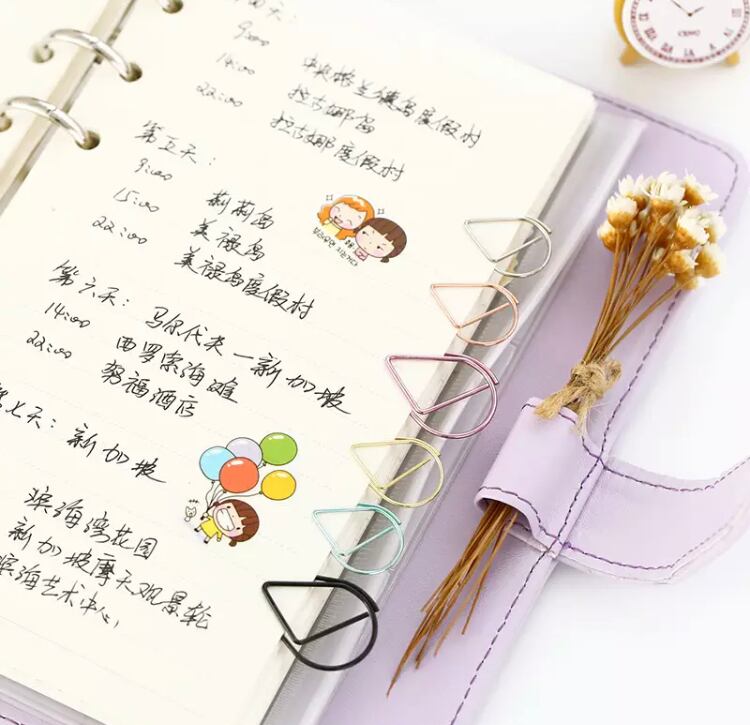 四天：
9:00 中央格兰德岛度假村
14:00 拉古娜岛
22:00 拉古娜度假村
第五天：
9:00 莉莉岛
15:00 美禄岛
22:00 美禄岛度假村
第六天：马尔代夫—新加坡
14:00 西罗索海滩
22:00 努福酒店
第七天：新加坡
滨海湾花园
新加坡摩天观景轮
滨海艺术中心